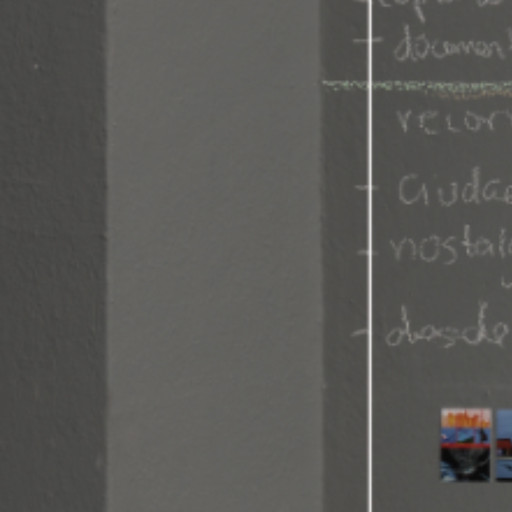 documen
recor
Ciudad
nostal
desde